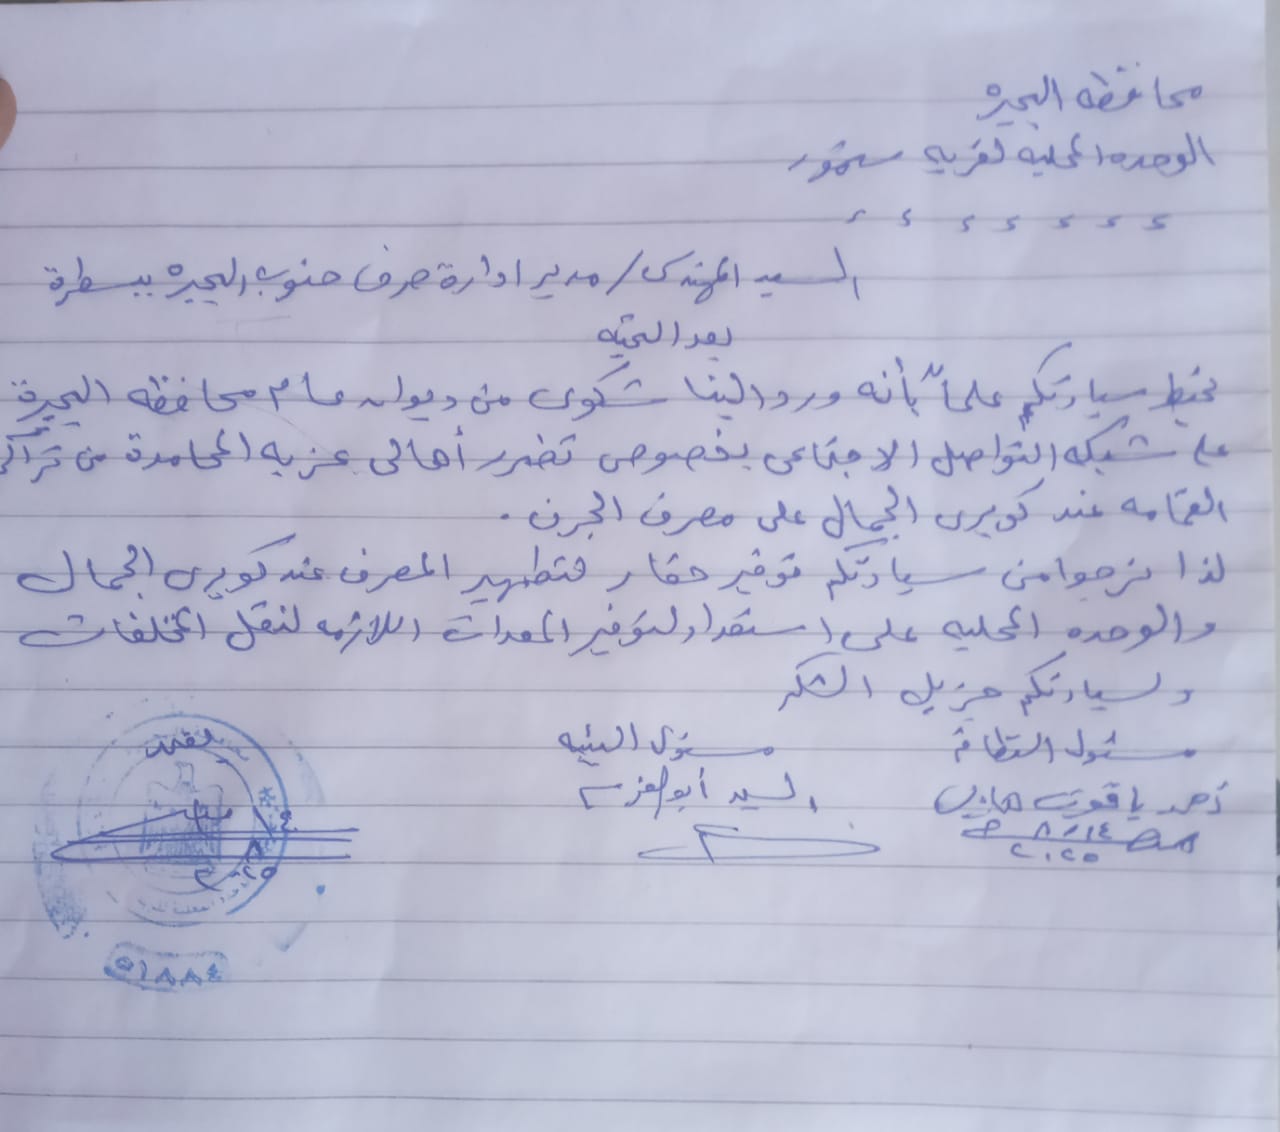 محافظه البحيره
الوحده المحليه لقريه سمخور
ء ء ء ء ء ء ء
السيد المهندس / مدير ادارة صرف جنوب البحيره ببسطرة
بعد التحيه
نحيط سيادتكم علماً بأنه ورد الينا شكوى من ديوان عام محافظه البحيرة
على شبكه التواصل الاجتماعى بخصوص تضرر أهالى عزبه المحامدة من تراكم
القمامه عند كوبرى الجمال على مصرف الجرن .
لذا نرجوا من سيادتكم توفير حفار لتطهير المصرف عند كوبرى الجمال
والوحده المحليه على استعداد لتوفير المعدات اللازمه لنقل المخلفات
ولسيادتكم جزيل الشكر
مسئول النظافة مسئول البيئيه
احمد ياقوت السيد أبو العزم
٨/١٤
٢٠٢٥
يعتمد
٥١٨٨٤